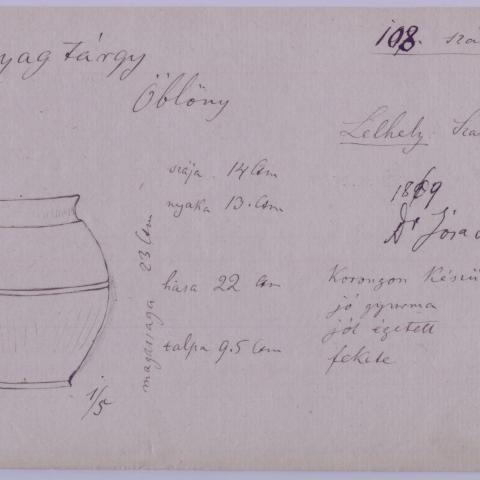 108. szá
yag tárgy
Öblöny
Lelhely: Sza
szája 14 Cm
nyaka 13. Cm
1869
Dr Jósa
magassága 23 Cm
hasa 22 Cm
talpa 9.5 Cm
Korongon Készü
jó gyurma
jól égetett
fekete
1/5